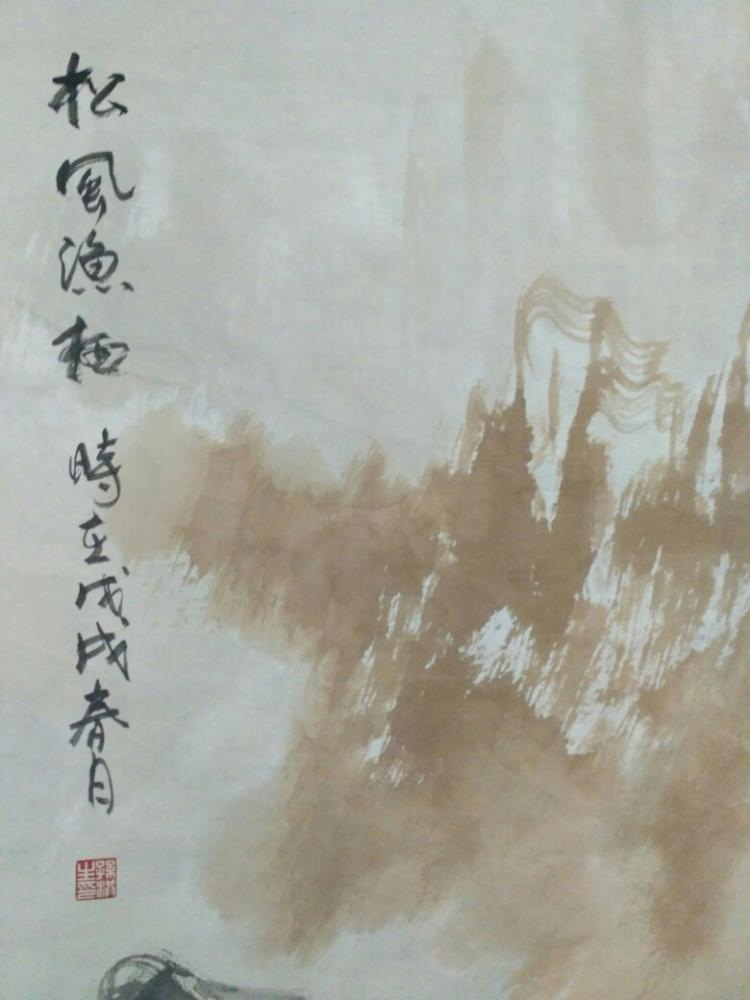 松風漁栖
時在戊戌春月